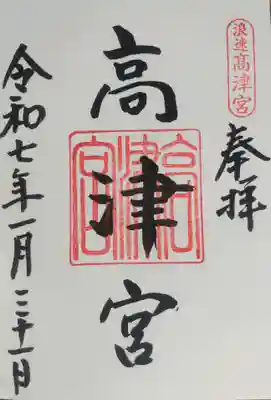 浪速高津宮
奉拝
高津宮
高津宮
令和七年一月三十一日